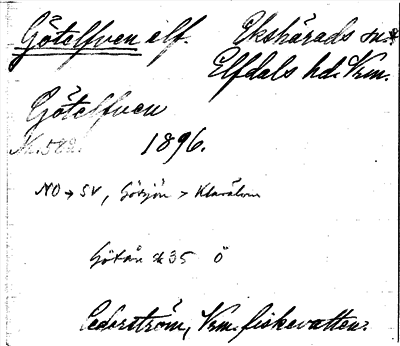 Götelfven elf. Ekshärads sn
Elfdals hd. Vrm.
Götelfven
1896.
NO → SV, Götsjön > Klarälven
Götån 35 Ö
Cederström, Vrm. fiskevatten.